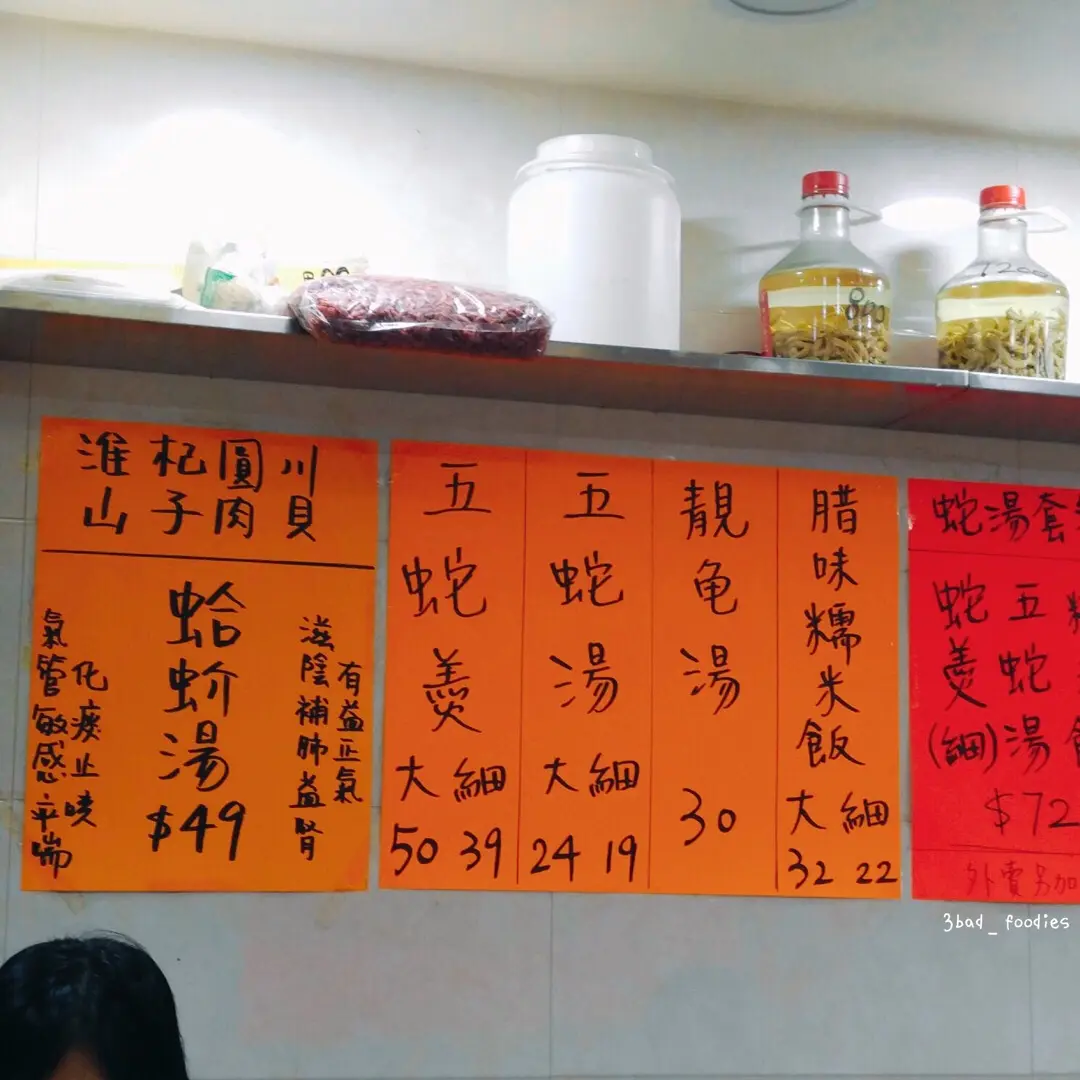 800
7200
淮山 杞子 圓肉 川貝
蛤蚧湯
$49
滋陰補肺益腎
有益正氣
化痰止咳
氣管敏感平喘
五蛇羹
大 細
50 39
五蛇湯
大 細
24 19
靚龟湯
30
腊味糯米飯
大 細
32 22
蛇湯套
蛇羹(細)
五蛇湯
$72
外賣另加
3bad_foodies